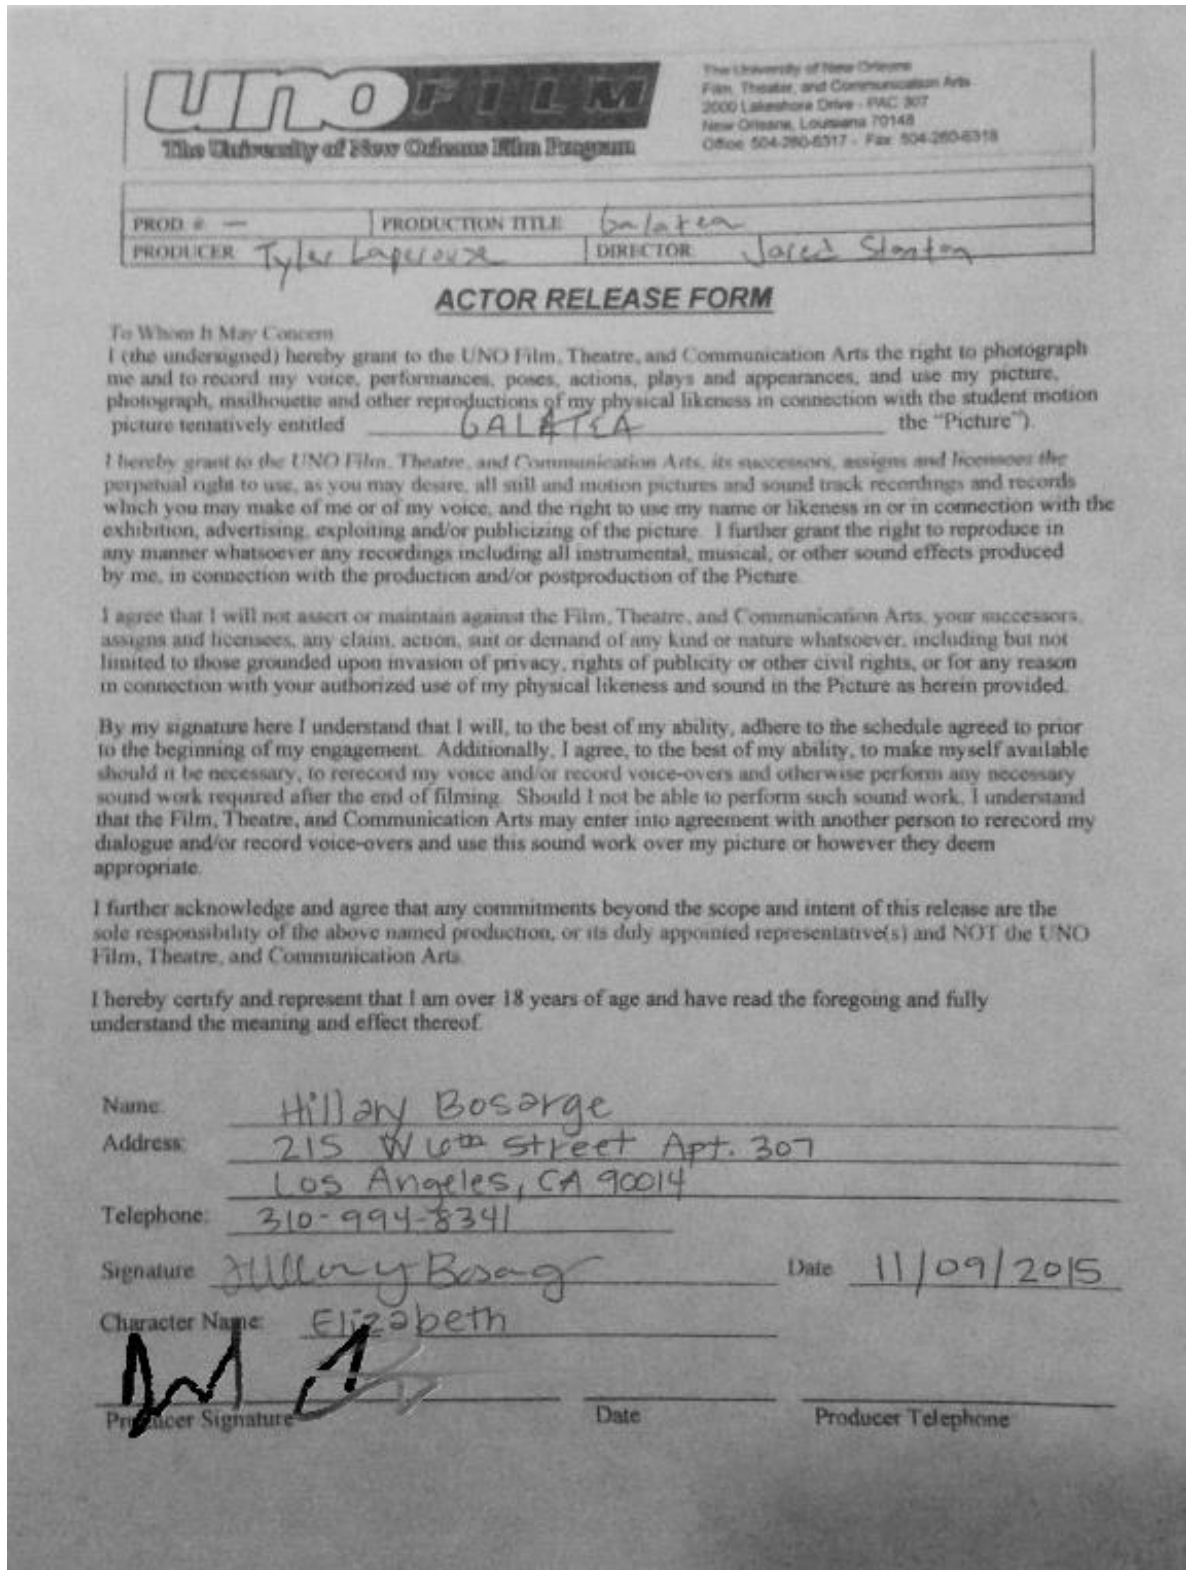 unoFILM
The University of New Orleans Film Program
The University of New Orleans
Film, Theater, and Communication Arts
2000 Lakeshore Drive - PAC 307
New Orleans, Louisiana 70148
Office: 504-280-6317 - Fax: 504-280-6318
PROD # — PRODUCTION TITLE Galatea
PRODUCER Tyler Laperouse DIRECTOR Jared Stanton
ACTOR RELEASE FORM
To Whom It May Concern
I (the undersigned) hereby grant to the UNO Film, Theatre, and Communication Arts the right to photograph
me and to record my voice, performances, poses, actions, plays and appearances, and use my picture,
photograph, msilhouette and other reproductions of my physical likeness in connection with the student motion
picture tentatively entitled GALATEA the "Picture").
I hereby grant to the UNO Film, Theatre, and Communication Arts, its successors, assigns and licensees the
perpetual right to use, as you may desire, all still and motion pictures and sound track recordings and records
which you may make of me or of my voice, and the right to use my name or likeness in or in connection with the
exhibition, advertising, exploiting and/or publicizing of the picture. I further grant the right to reproduce in
any manner whatsoever any recordings including all instrumental, musical, or other sound effects produced
by me, in connection with the production and/or postproduction of the Picture.
I agree that I will not assert or maintain against the Film, Theatre, and Communication Arts, your successors,
assigns and licensees, any claim, action, suit or demand of any kind or nature whatsoever, including but not
limited to those grounded upon invasion of privacy, rights of publicity or other civil rights, or for any reason
in connection with your authorized use of my physical likeness and sound in the Picture as herein provided.
By my signature here I understand that I will, to the best of my ability, adhere to the schedule agreed to prior
to the beginning of my engagement. Additionally, I agree, to the best of my ability, to make myself available
should it be necessary, to rerecord my voice and/or record voice-overs and otherwise perform any necessary
sound work required after the end of filming. Should I not be able to perform such sound work, I understand
that the Film, Theatre, and Communication Arts may enter into agreement with another person to rerecord my
dialogue and/or record voice-overs and use this sound work over my picture or however they deem
appropriate.
I further acknowledge and agree that any commitments beyond the scope and intent of this release are the
sole responsibility of the above named production, or its duly appointed representative(s) and NOT the UNO
Film, Theatre, and Communication Arts.
I hereby certify and represent that I am over 18 years of age and have read the foregoing and fully
understand the meaning and effect thereof.
Name: Hillary Bosarge
Address: 215 W 6th Street Apt. 307
Los Angeles, CA 90014
Telephone: 310-994-8341
Signature Hillary Bosarg Date 11/09/2015
Character Name: Elizabeth
Producer Signature Date Producer Telephone